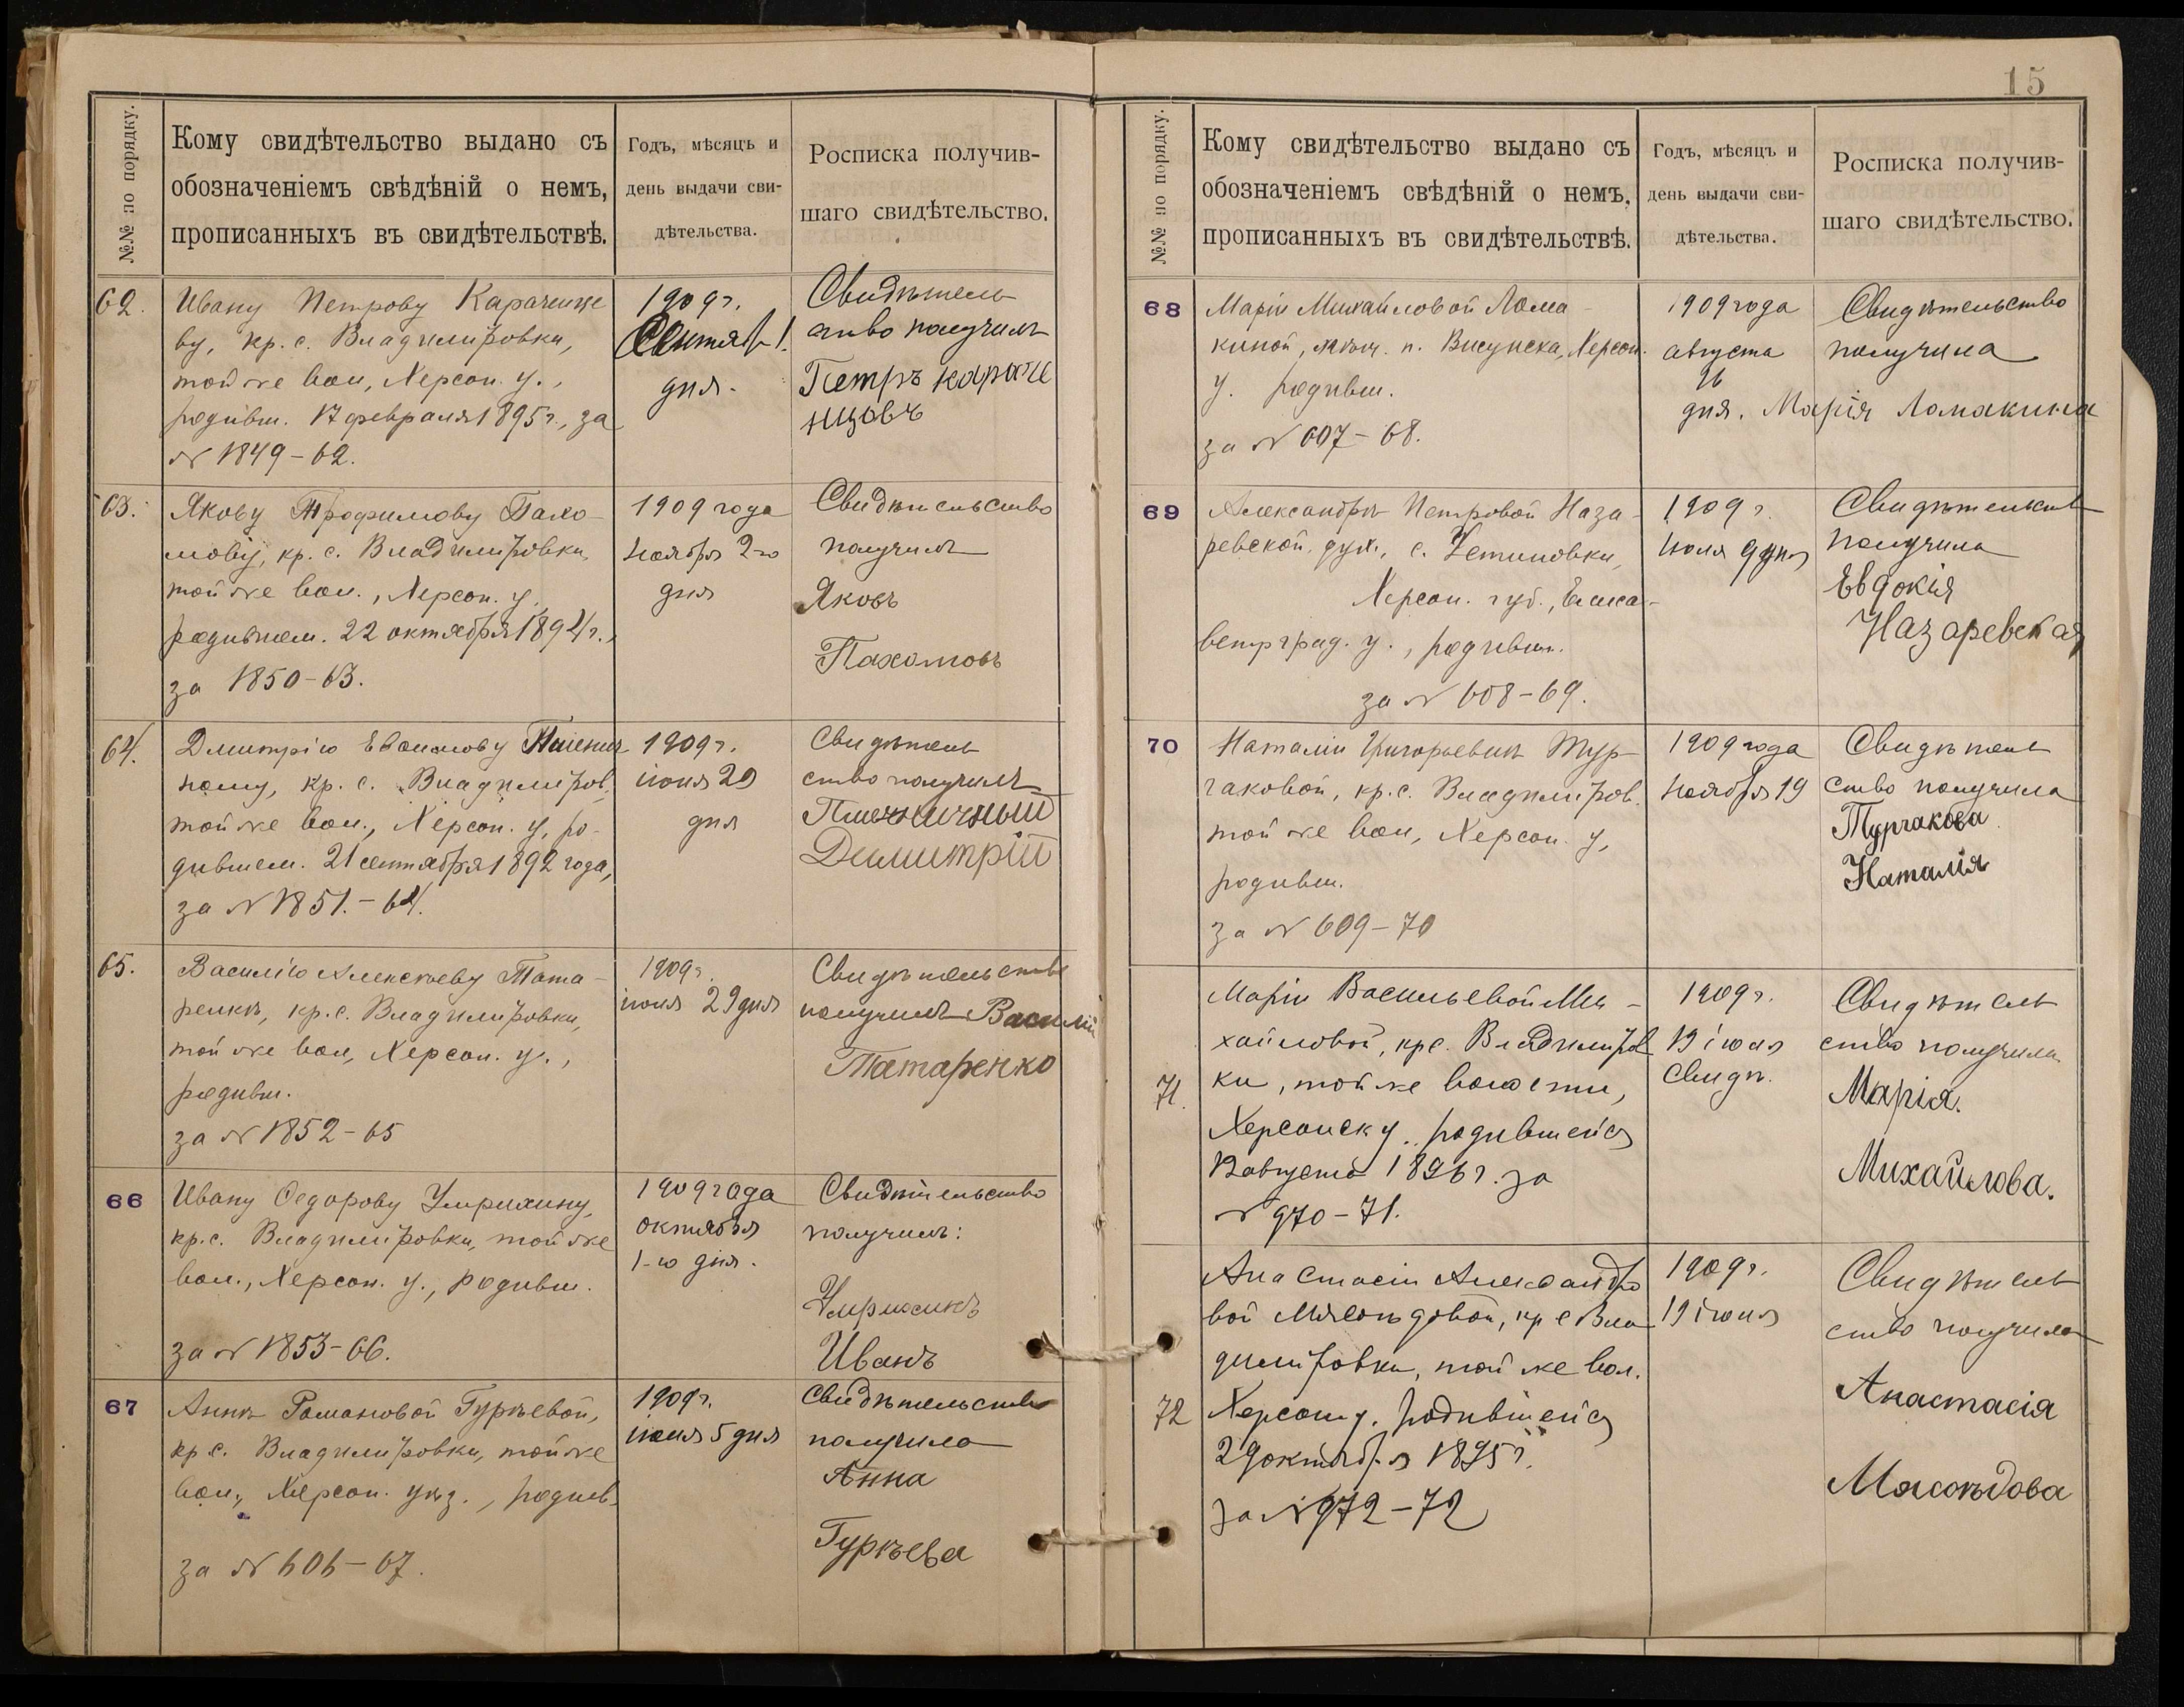 №№ по порядку.
Кому свидѣтельство выдано съ
обозначеніемъ свѣдѣній о немъ,
прописанныхъ въ свидѣтельствѣ.
Годъ, мѣсяцъ и
день выдачи сви-
дѣтельства.
Росписка получив-
шаго свидѣтельство.
62.
Ивану Петрову Караченце
ву, кр. с. Владимировки,
той же вол, Херсон. у.,
родивш. 17 февраля 1895 г., за
№ 1849-62.
1909 г.
Сентяб 1.
дня.
Свидѣтель
ство получилъ
Петръ караче
нцовъ
63.
Якову Трофимову Пахо-
мову, кр. с. Владимировки,
той же вол., Херсон. у.
родившем. 22 октября 1894 г.,
за 1850-63.
1909 года
Ноября 2-го
дня
Свидѣтельство
получилъ
Яковъ
Пахомовъ
64.
Дмитрію Евфимову Пшенич
ному, кр. с. Владимиров.
той же вол., Херсон. у, ро-
дившем. 21 сентября 1892 года,
за № 1851.-64.
1909 г.
іюня 29
дня
Свидѣтель
ство получилъ
Пшеничный
Димитрій
65.
Василію Алексѣеву Тата-
ренкѣ, кр. с. Владимировки,
той же вол, Херсон. у.,
родивш.
за № 1852-65
1909 г.
іюня 29 дня
Свидѣтельство
получилъ Василій
Татаренко
66
Ивану Федорову Умрихину,
кр. с. Владимировки, той же
вол., Херсон. у., родивш.
за № 1853-66.
1909 года
октября
1-го дня.
Свидѣтельство
получилъ:
Умрихинъ
Иванъ
67
Аннѣ Романовой Гурѣевой,
кр. с. Владимировки, той же
вол., Херсон. уѣз., родив.
за № 606-67.
1909 г.
іюня 5 дня
Свидѣтельство
получила
Анна
Гурѣева
15
№№ по порядку.
Кому свидѣтельство выдано съ
обозначеніемъ свѣдѣній о немъ,
прописанныхъ въ свидѣтельствѣ.
Годъ, мѣсяцъ и
день выдачи сви-
дѣтельства.
Росписка получив-
шаго свидѣтельство.
68
Маріи Михайловой Лома-
киной, мѣщ. п. Висунска, Херсон.
у. родивш.
за № 607-68.
1909 года
августа
26
дня.
Свидѣтельство
получила
Марія Ломакина
69
Александрѣ Петровой Наза-
ревской, дух., с. Устиновки,
Херсон. губ., Елиса-
ветрград. у., родивш.
за № 608-69.
1909 г.
Іюля 9 дня
Свидѣтельств
получила
Евдокія
Назаревская
70
Наталіи Григорьевнѣ Тур-
чаковой, кр. с. Владимиров.
той же вол, Херсон. у,
родивш.
за № 609-70
1909 года
Ноября 19
Свидѣтель
ство получила
Турчакова
Наталія
71.
Маріи Васильевой Ми-
хайловой, кр с. Владимиров
ки, той же волости,
Херсонск у. родившейся
12 августа 1896 г. за
№ 970-71.
1909 г.
19 іюня
Свидѣ.
Свидѣтель
ство получила
Марія.
Михайлова.
72
Анастасіи Александро
вой Мясоѣдовой, кр с Вла
димировки, той же вол.
Херсон у. родившейся
29 октября 1895 г.
за № 972-72
1909 г.
19 іюня
Свидѣтель
ство получила
Анастасія
Мясоѣдова